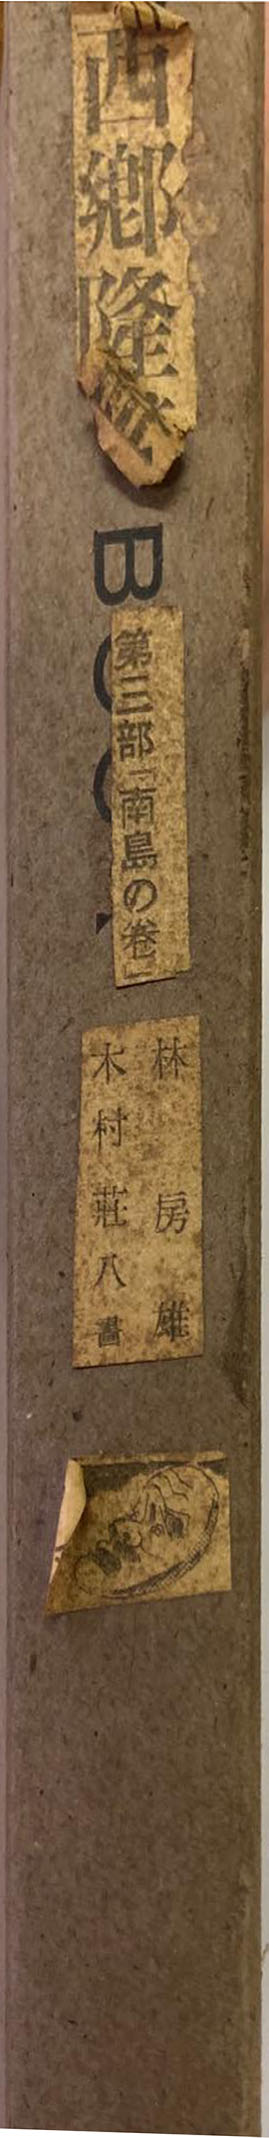 西郷隆盛
第三部「南島の卷」
林房雄
木村莊八畫